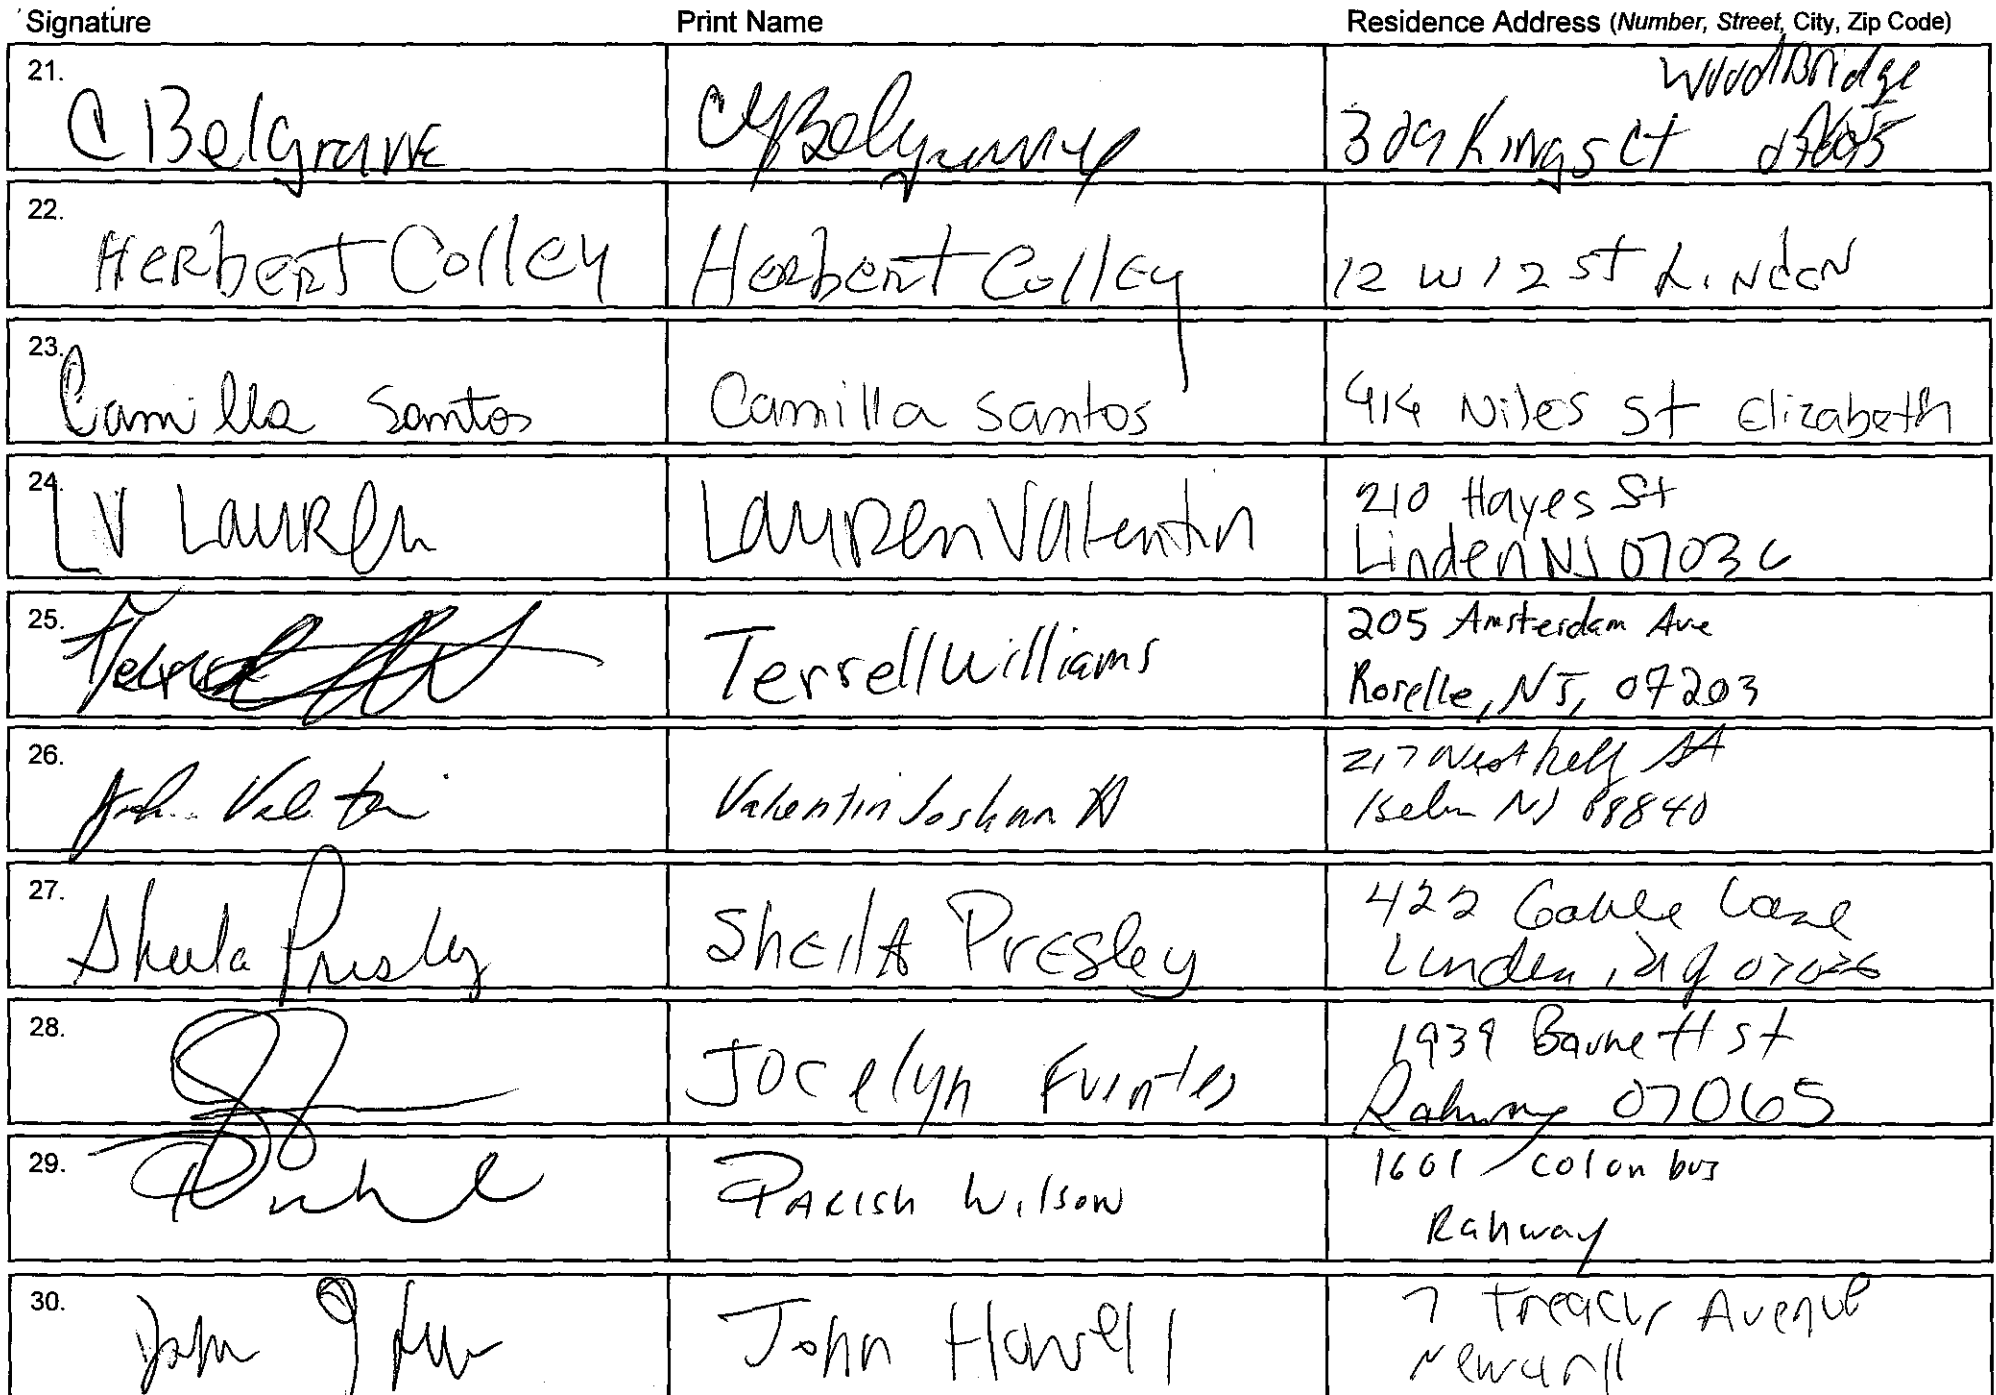 Signature Print Name Residence Address (Number, Street, City, Zip Code)
21. C Belgrave Cy Belgrave WoodBridge
309 Kings Ct
22. Herbert Colley Herbert Colley 12 W 12 St Linden
23. Camilla Santos Camilla Santos 414 Niles St Elizabeth
24. LV Lauren Lauren Valentin 210 Hayes St
Linden NJ 07036
25. Terrell Williams 205 Amsterdam Ave
Roselle, NJ, 07203
26. Valentin Joshua 217 West Kelly St
Iselin NJ 08840
27. Sheila Presley SheilA Presley 422 Lane
Linden, NJ 07036
28. Jocelyn Fuentes 1939 Barnett St
Rahway 07065
29. Parish Wilson 1601 Colonbus
Rahway
30. John John Howell 7 Treacy Avenue
Newark